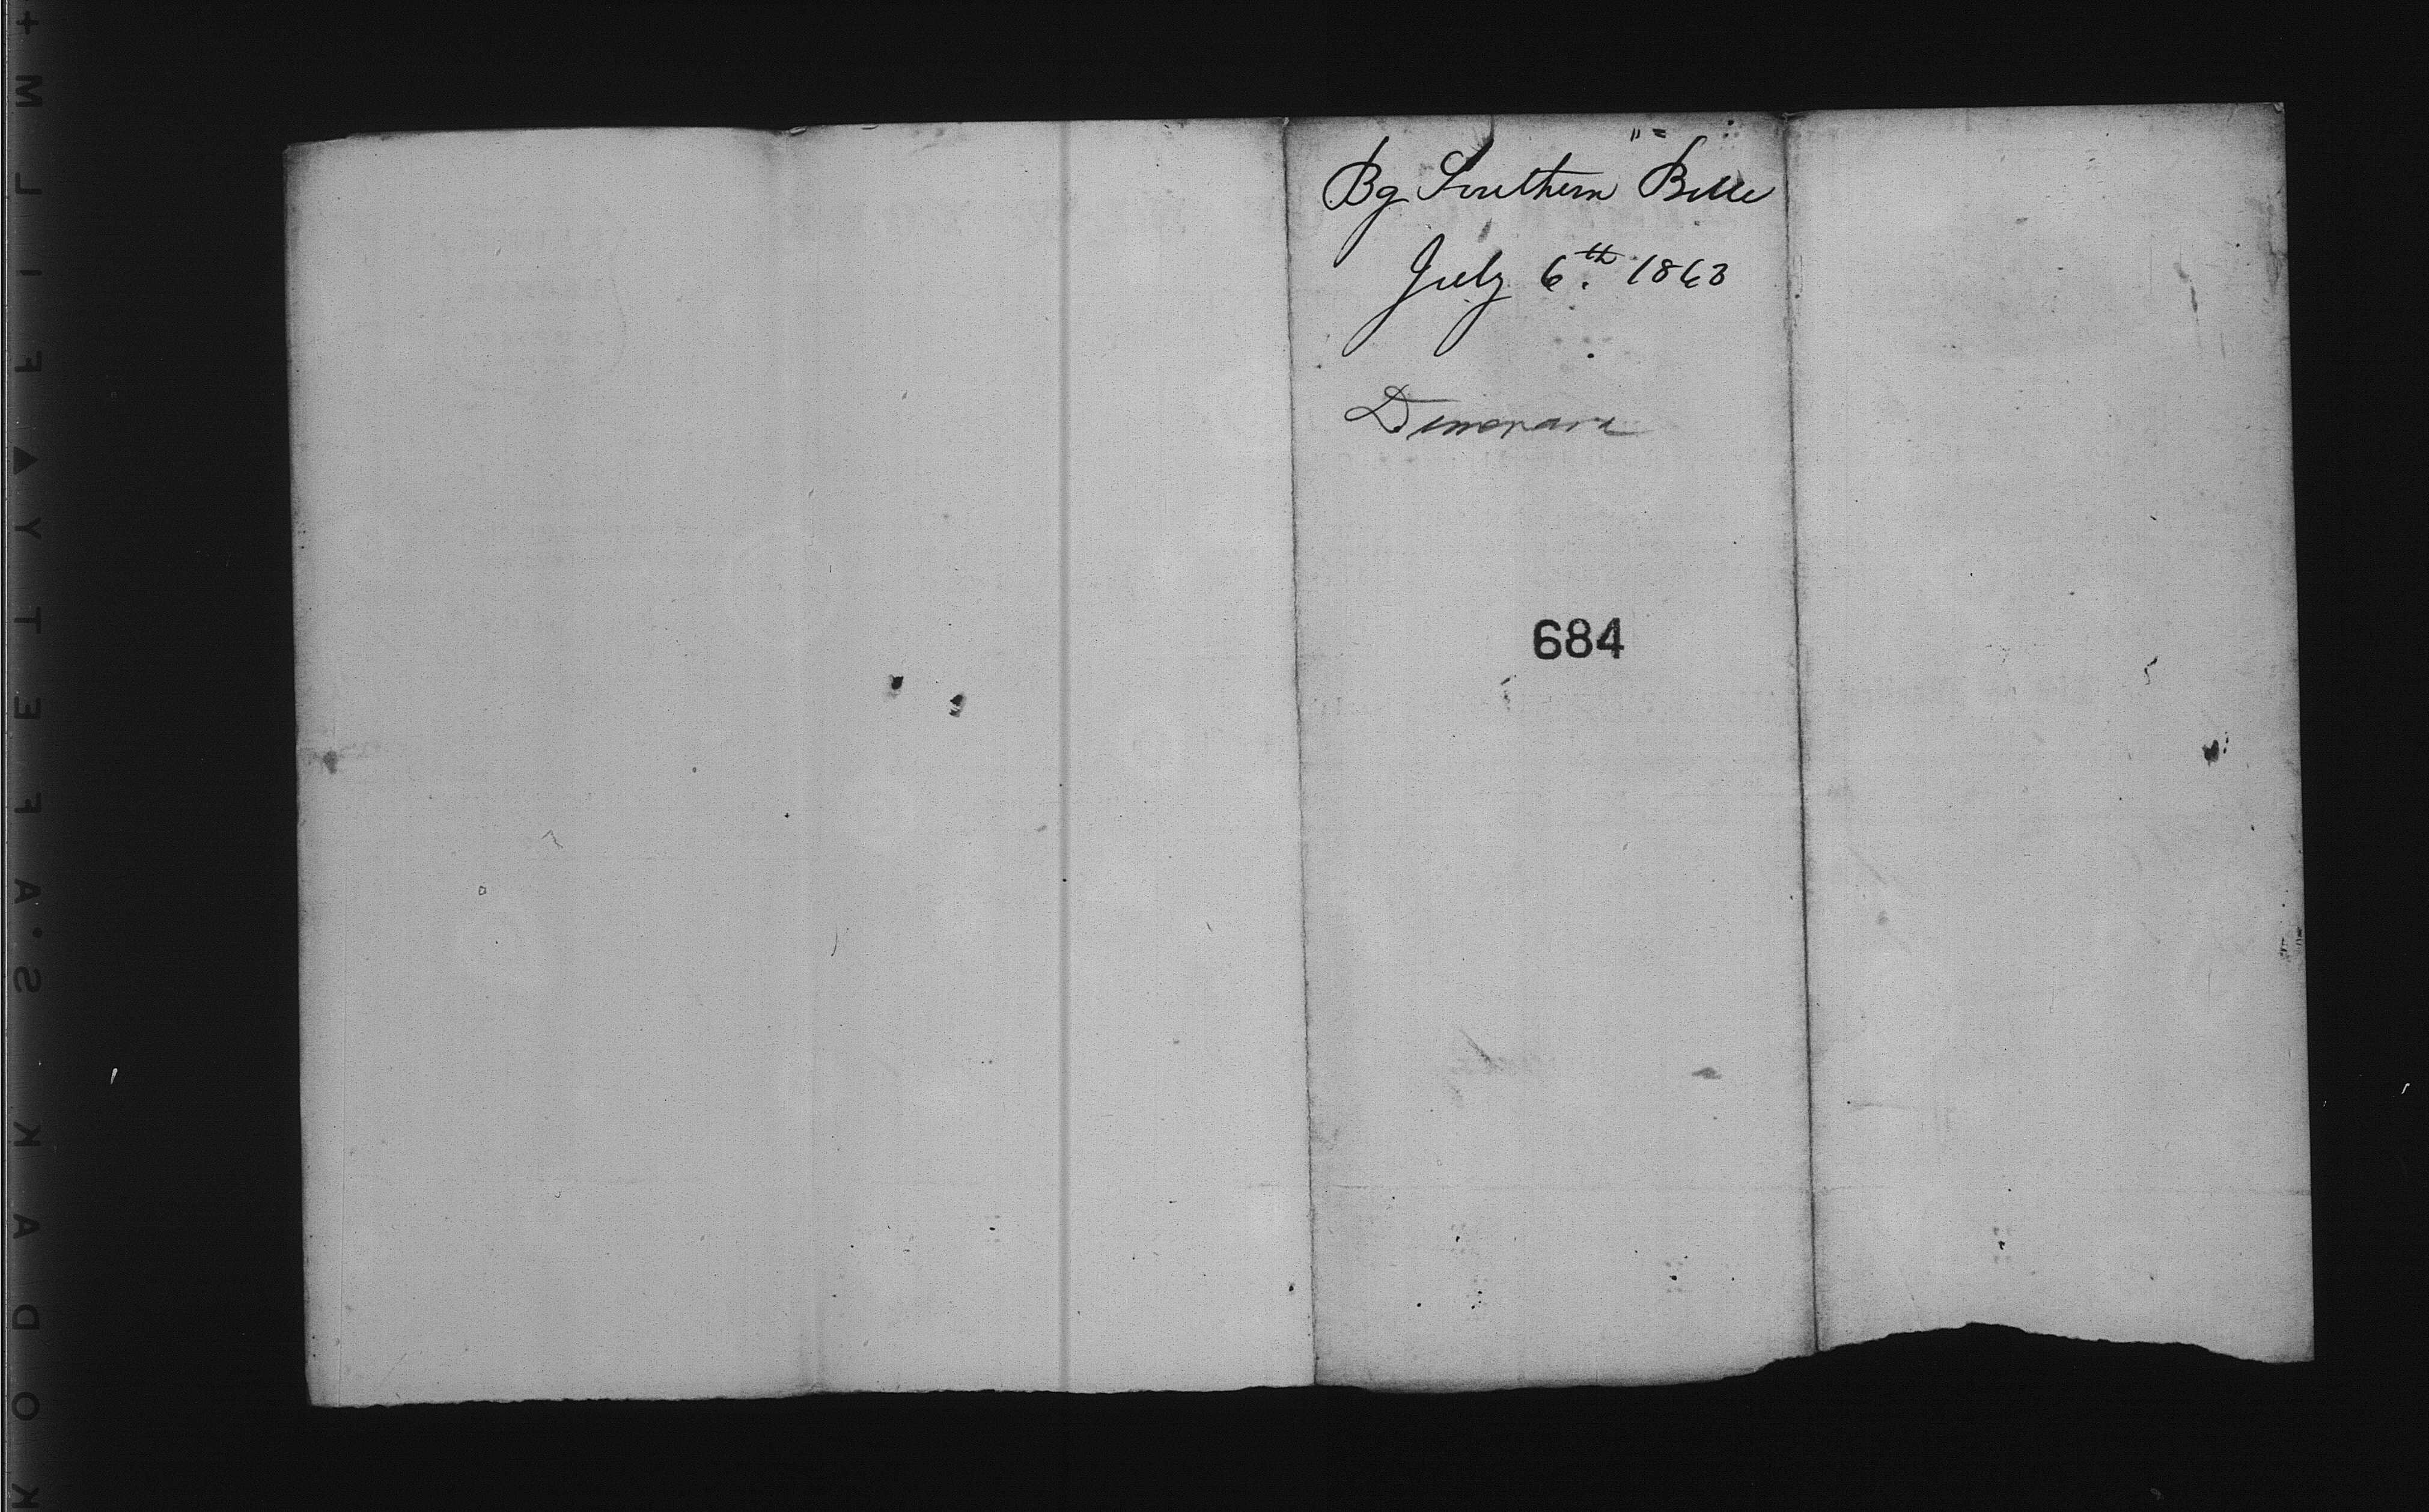 Bg Southern Belle
July 6th. 1863
Demerara
684
KODAK·S.A.FETY▲FILM+